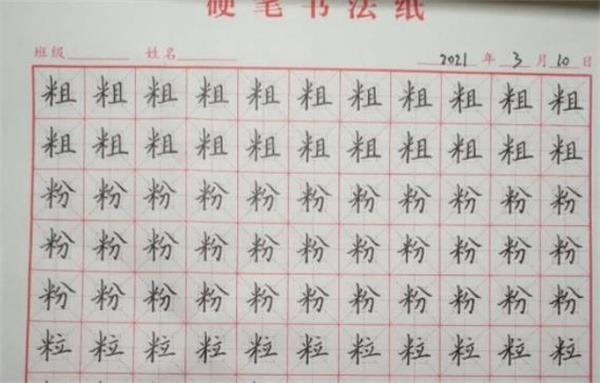 硬笔书法纸
班级 姓名 2021 年 3 月 10 日
粗 粗 粗 粗 粗 粗 粗 粗 粗 粗 粗
粗 粗 粗 粗 粗 粗 粗 粗 粗 粗 粗
粉 粉 粉 粉 粉 粉 粉 粉 粉 粉 粉
粉 粉 粉 粉 粉 粉 粉 粉 粉 粉 粉
粉 粉 粉 粉 粉 粉 粉 粉 粉 粉 粉
粒 粒 粒 粒 粒 粒 粒 粒 粒 粒 粒